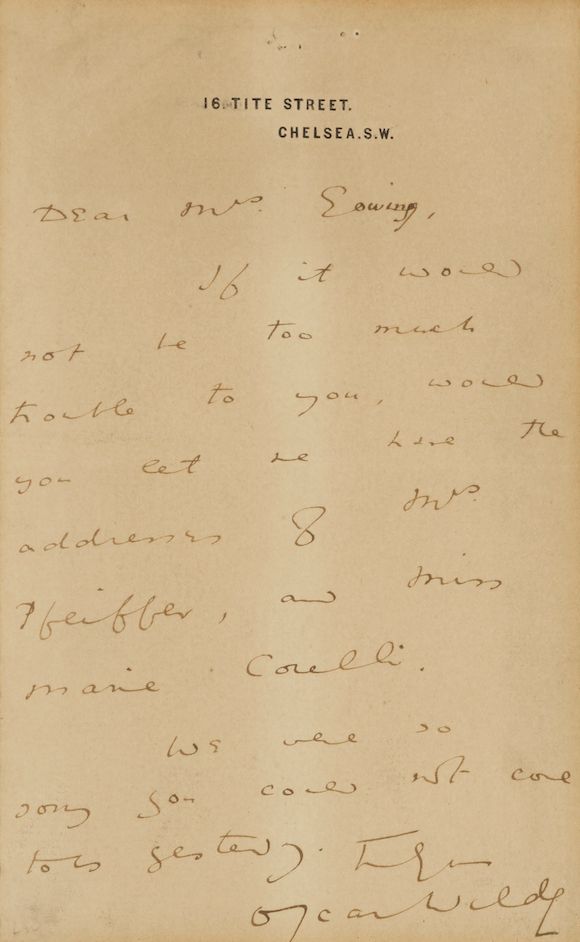 16. TITE STREET.
CHELSEA. S.W.
Dear Mrs. Ewing,
If it would
not be too much
trouble to you, would
you let me have the
addresses of Mrs
Pfeiffer, and Miss
Marie Corelli.
We were so
sorry you could not come
to us yesterday.
Oscar Wilde